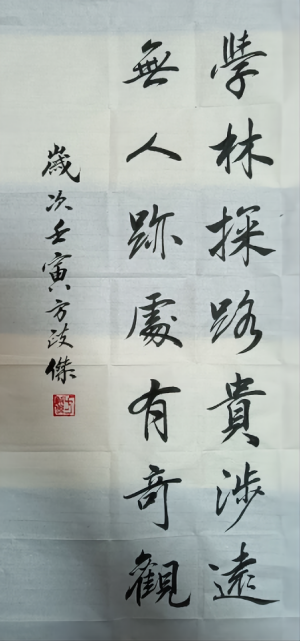 學林探路貴涉遠
無人跡處有奇觀
歲次壬寅方政傑